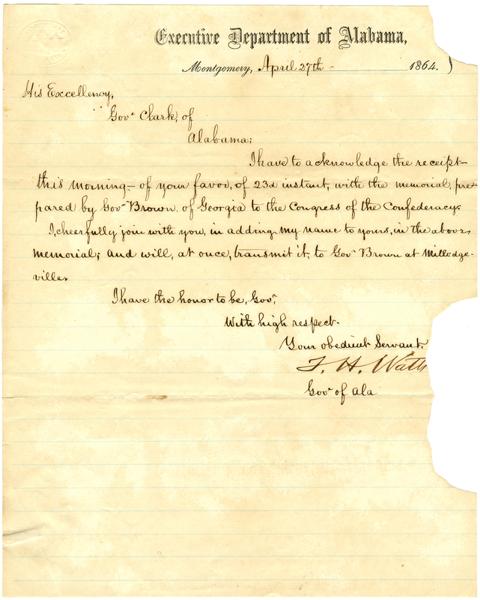 Executive Department of Alabama,
Montgomery, April 27th - 1864.
His Excellency,
Gov. Clark, of
Alabama:
I have to acknowledge the receipt-
this morning - of your favor, of 23d instant, with the memorial, pre-
pared by Gov. Brown, of Georgia to the Congress of the Confederacy.
I, cheerfully join with you, in adding my name to yours, in the above
memorial, and will, at once, transmit it, to Gov. Brown at Milledge-
ville.
I have the honor to be, Gov.,
With high respect.
Your obedient Servant.
T. H. Watts
Gov. of Ala